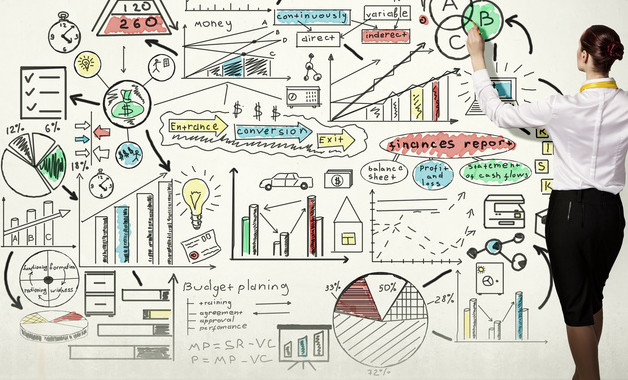 120
260
money
A
B
C
continuously
variable
direct
inderect
A
B
C
12%
6%
18%
$
$ $ $
Entrance
conversion
Exit
finances report
balance sheet
Profit and loss
statement of cash flows
R
I
S
K
A B C
33%
50%
28%
72%
Budget planing
training
agreement
approval
perfomance
MP = SR - VC
P = MP - VC